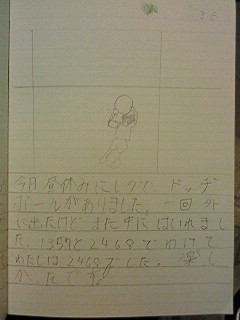 今日昼休みにレクで、ドッヂ
ボールがありました。一回外
に出たけどまた中にはいれまし
た。1357と2468でわけて
わたしは2468でした。楽し
かったです。